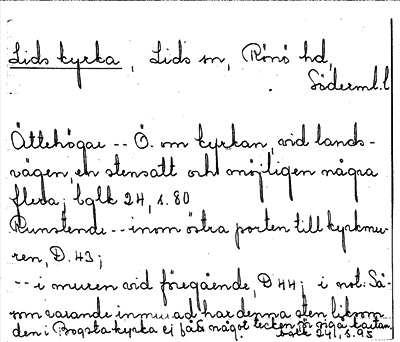 Lids kyrka, Lids sn, Rönö hd,
Söderml.l
Ättehögar -- Ö. om kyrkan, vid lands-
vägen, en stensatt och möjligen några
flera; bglk 24, s. 80
Runstende -- inom östra porten till kyrkmu-
ren, D. 43;
-- i muren vid föregående, D 44; i not. Så-
som varande inmurad har denna sten liksom
den i Bogsta kyrka ej fått något tecken för sig å kartan,
bglk 24, s. 95